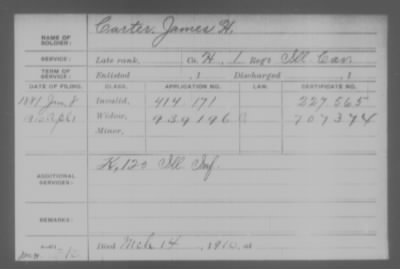 NAME OF SOLDIER: Carter, James H.
SERVICE: Late rank, Co. H, 1 Reg't Ill. Cav.
TERM OF SERVICE: Enlisted , 1 Discharged , 1
DATE OF FILING. CLASS. APPLICATION NO. LAW. CERTIFICATE NO.
1881 Jan. 8 Invalid, 414 171 227.565
Apl 1 Widow, 939196 707374
Minor,
ADDITIONAL SERVICES: K, 120 Ill. Inf.
REMARKS:
Died Mch 14, 1910, at